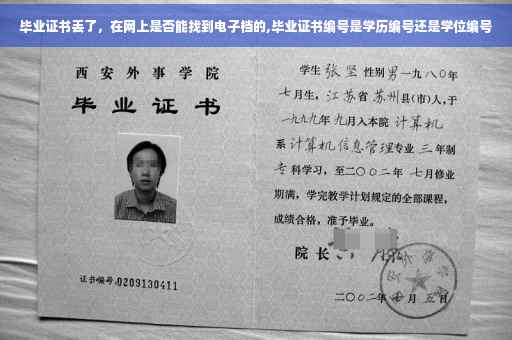 毕业证书丢了，在网上是否能找到电子档的,毕业证书编号是学历编号还是学位编号
西安外事学院
毕业证书
证书编号:0209130411
学生张坚性别男一九八〇年
七月生，江苏省苏州县(市)人，于
一九九九年九月入本院计算机
系计算机信息管理专业三年制
专科学习，至二〇〇二年七月修业
期满，学完教学计划规定的全部课程，
成绩合格，准予毕业。
院长
二〇〇二年 月五日